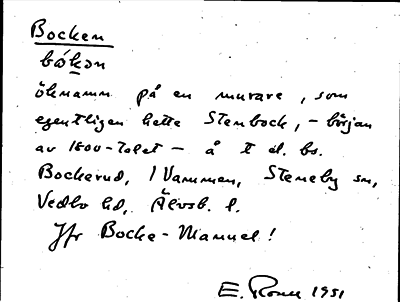 Bocken
bókən
öknamn på en murare, som
egentligen hette Stenbock, – början
av 1800-talet – å t d. bs.
Bockerud, i Vammen, Steneby sn,
Vedbo hd, Älvsb. l.
Jfr Bocke-Manuel!
E. 1951